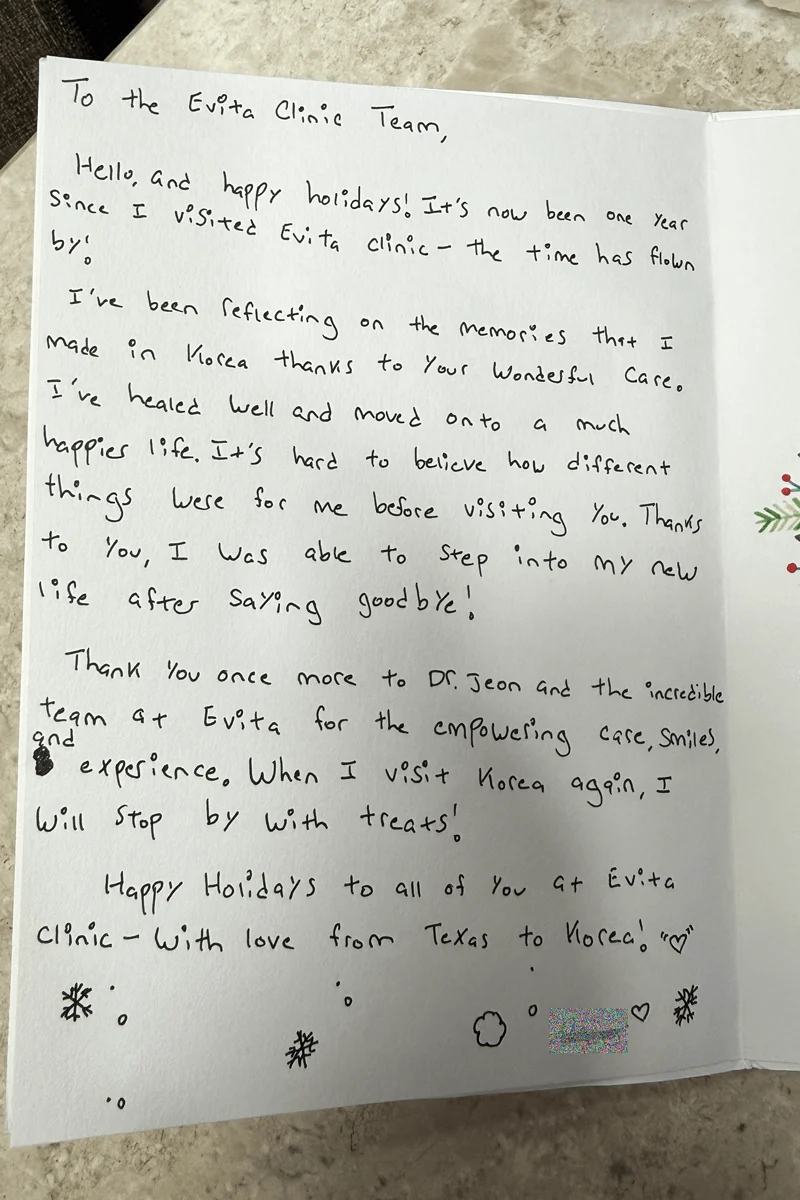 To the Evita Clinic Team,
Hello, and happy holidays! It's now been one year
since I visited Evita clinic – the time has flown
by!
I've been reflecting on the memories that I
made in Korea thanks to your wonderful care.
I've healed well and moved onto a much
happier life. It's hard to believe how different
things were for me before visiting you. Thanks
to you, I was able to step into my new
life after saying goodbye!
Thank you once more to Dr. Jeon and the incredible
team at Evita for the empowering care, smiles,
and
experience. When I visit Korea again, I
will stop by with treats!
Happy Holidays to all of you at Evita
Clinic – with love from Texas to Korea! "♡"